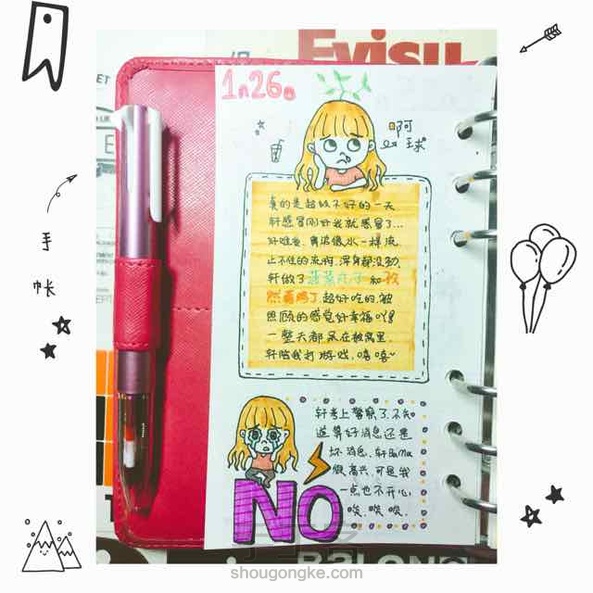 Evisu
1月26日
啊
球
手
帐
真的是超级不好的一天
轩感冒刚好我就感冒了...
好难受,鼻涕像水一样流
止不住的流啊,浑身都没劲,
轩做了菠菜丸子和孜
然面鸡丁,超好吃的,被
照顾的感觉好幸福吖!
一整天都呆在被窝里
轩陪我打游戏,嘻嘻~
轩考上警察了,不知
道算好消息还是
坏消息,轩BaMa
很高兴,可是我
一点也不开心
唉,唉,唉.
NO
shougongke.com